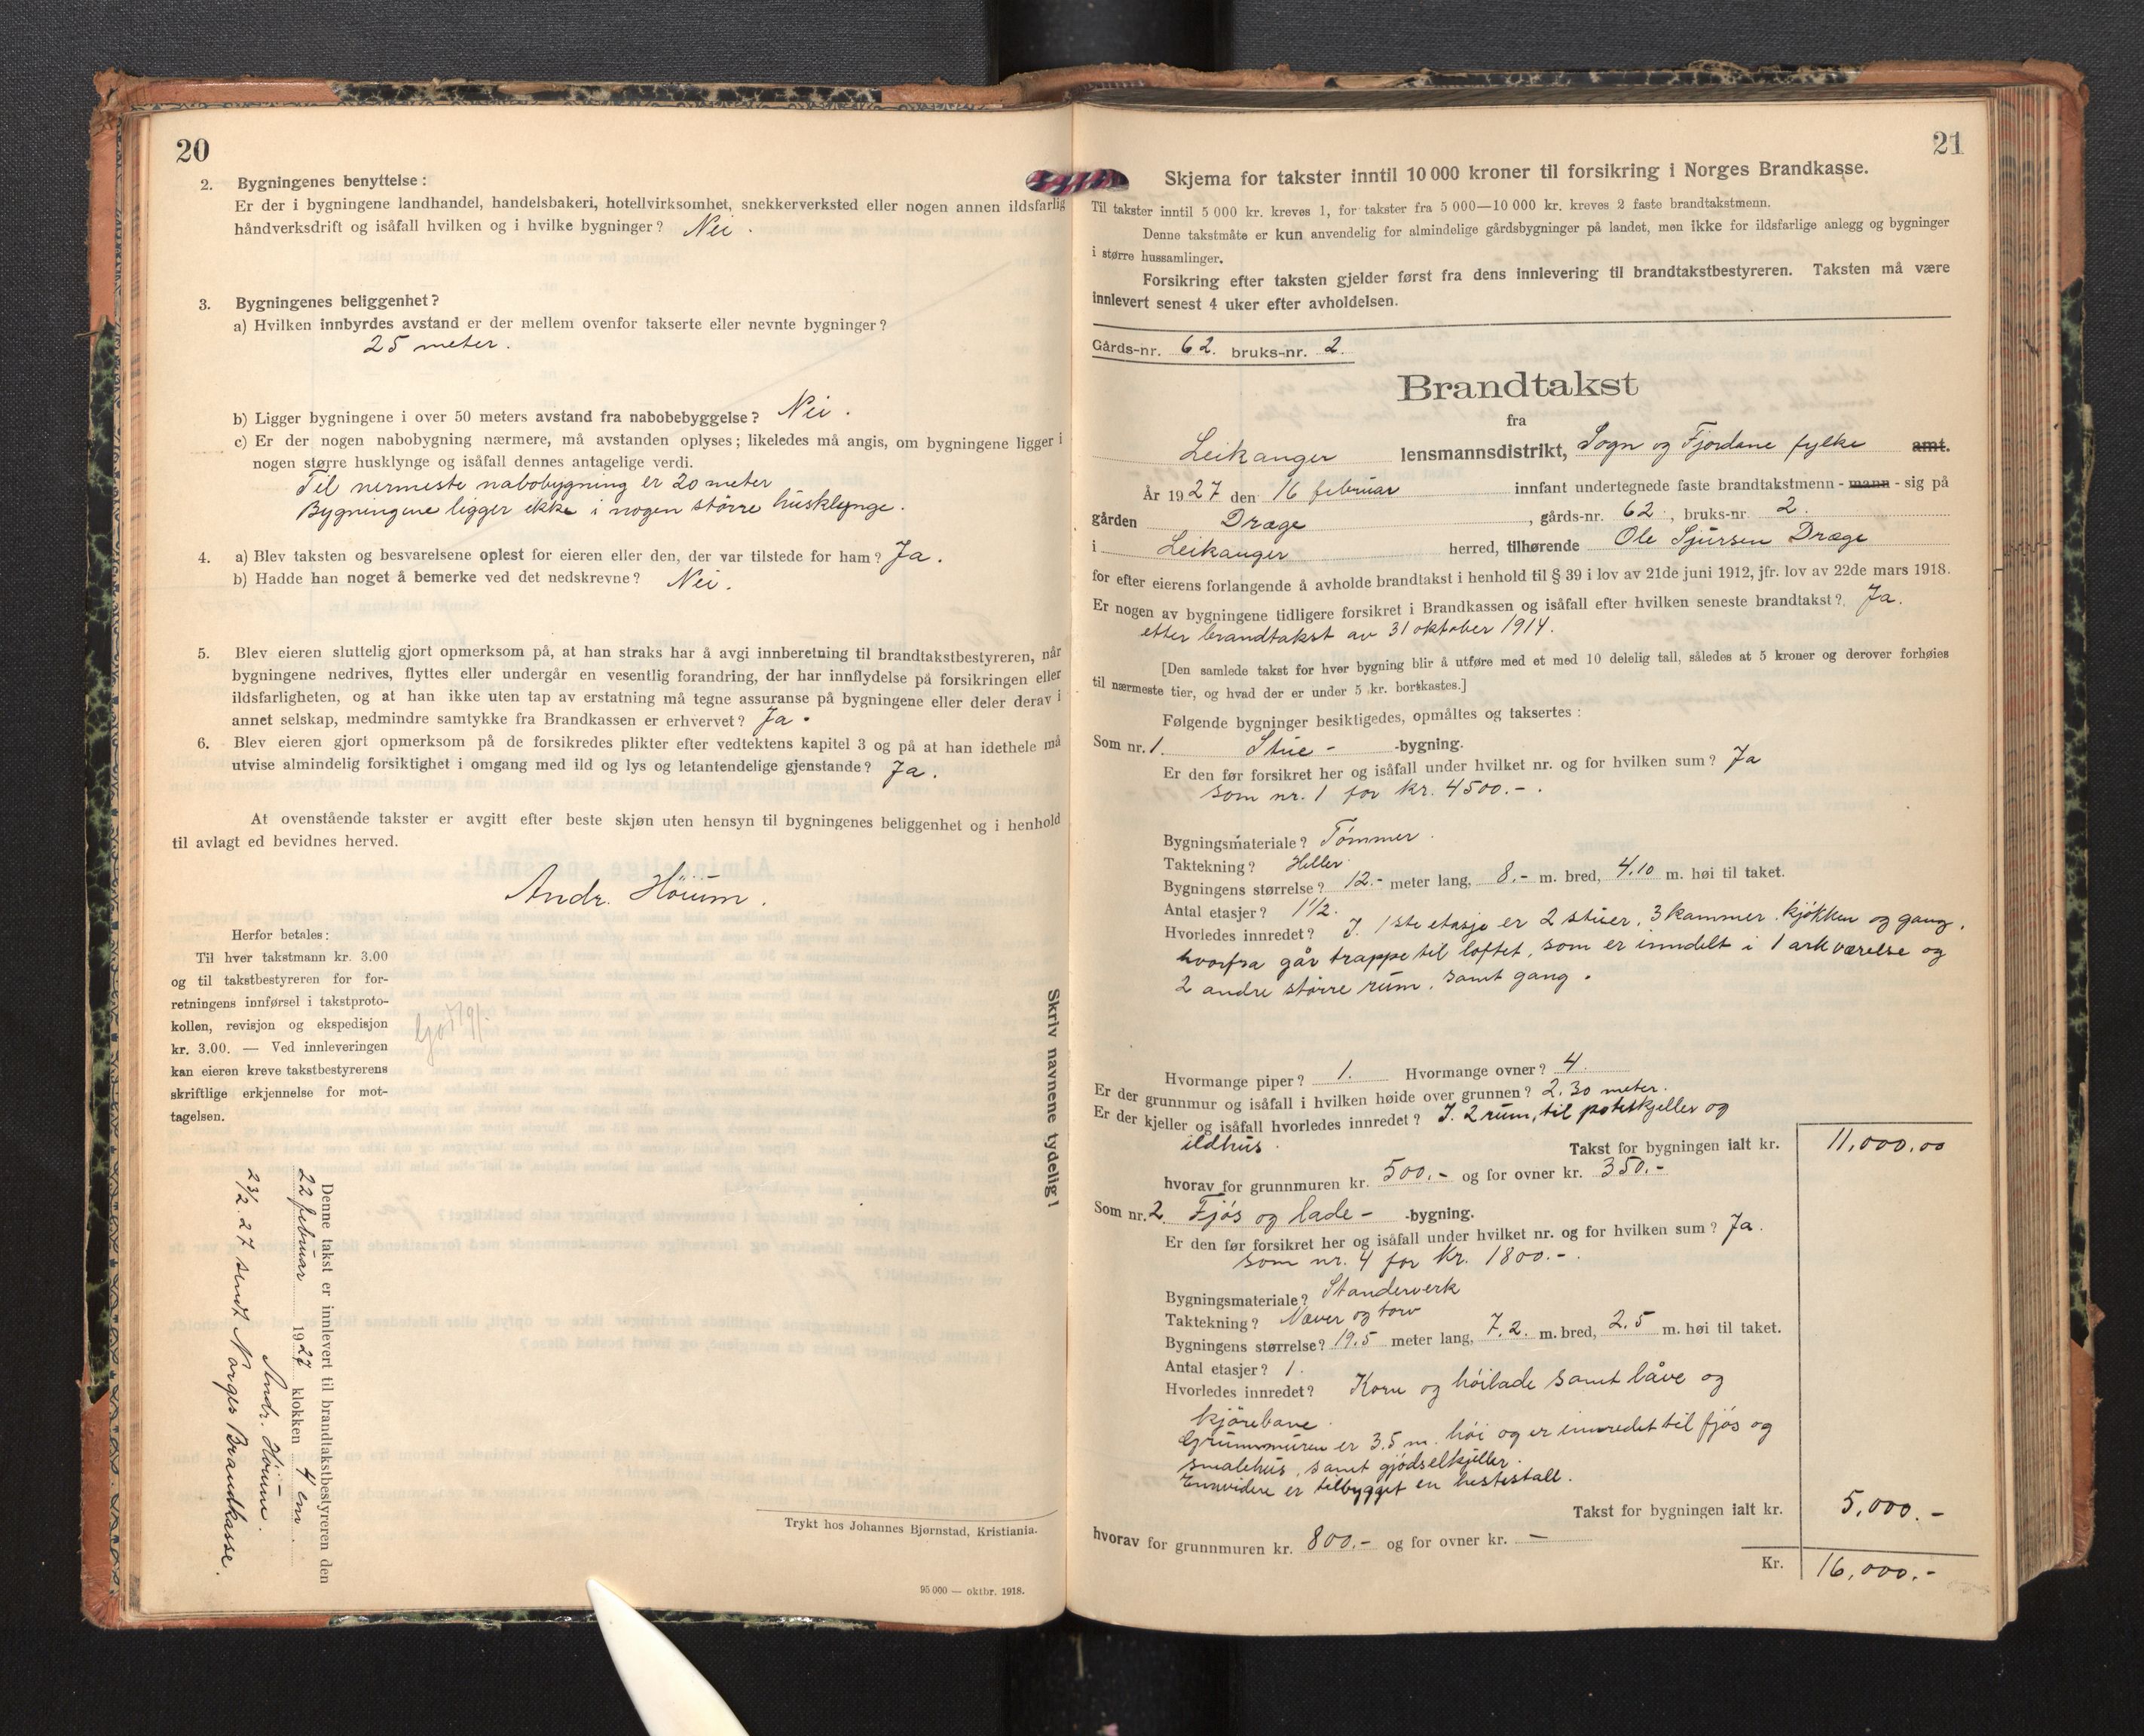 20
2. Bygningenes benyttelse:
Er der i bygningene landhandel, handelsbakeri, hotellvirksomhet, snekkerverksted eller nogen annen ildsfarlig
håndverksdrift og isåfall hvilken og i hvilke bygninger? Nei.
3. Bygningenes beliggenhet?
a) Hvilken innbyrdes avstand er der mellem ovenfor takserte eller nevnte bygninger?
25 meter.
b) Ligger bygningene i over 50 meters avstand fra nabobebyggelse? Nei.
c) Er der nogen nabobygning nærmere, må avstanden oplyses; likeledes må angis, om bygningene ligger i
nogen større husklynge og isåfall dennes antagelige verdi.
Til nermeste nabobygning er 20 meter
Bygningene ligger ikke i nogen större husklynge.
4. a) Blev taksten og besvarelsene oplest for eieren eller den, der var tilstede for ham? Ja.
b) Hadde han noget å bemerke ved det nedskrevne? Nei.
5. Blev eieren sluttelig gjort opmerksom på, at han straks har å avgi innberetning til brandtakstbestyreren, når
bygningene nedrives, flyttes eller undergår en vesentlig forandring, der har innflydelse på forsikringen eller
ildsfarligheten, og at han ikke uten tap av erstatning må tegne assuranse på bygningene eller deler derav i
annet selskap, medmindre samtykke fra Brandkassen er erhvervet? Ja.
6. Blev eieren gjort opmerksom på de forsikredes plikter efter vedtektens kapitel 3 og på at han idethele må
utvise almindelig forsiktighet i omgang med ild og lys og letantendelige gjenstande? Ja.
At ovenstående takster er avgitt efter beste skjøn uten hensyn til bygningenes beliggenhet og i henhold
til avlagt ed bevidnes herved.
Andr. Höium.
Herfor betales:
Til hver takstmann kr. 3.00
og til takstbestyreren for for-
retningens innførsel i takstproto-
kollen, revisjon og ekspedisjon
kr. 3.00. — Ved innleveringen
kan eieren kreve takstbestyrerens
skriftlige erkjennelse for mot-
tagelsen.
Skriv navnene tydelig!
Denne takst er innlevert til brandtakstbestyreren den
22 februar 1927 klokken 4 em.
Andr. Höium.
23/2. 27 sendt Norges Brandkasse.
Trykt hos Johannes Bjørnstad, Kristiania.
95 000 — oktbr. 1918.
21
Skjema for takster inntil 10 000 kroner til forsikring i Norges Brandkasse.
Til takster inntil 5 000 kr. kreves 1, for takster fra 5 000—10 000 kr. kreves 2 faste brandtakstmenn.
Denne takstmåte er kun anvendelig for almindelige gårdsbygninger på landet, men ikke for ildsfarlige anlegg og bygninger
i større hussamlinger.
Forsikring efter taksten gjelder først fra dens innlevering til brandtakstbestyreren. Taksten må være
innlevert senest 4 uker efter avholdelsen.
Gårds-nr. 62. bruks-nr. 2.
Brandtakst
fra
Leikanger lensmannsdistrikt, Sogn og Fjordane fylke amt.
År 1927 den 16 februar innfant undertegnede faste brandtakstmenn - mann - sig på
gården Dræge, gårds-nr. 62, bruks-nr. 2.
i Leikanger herred, tilhørende Ole Sjursen Dræge
for efter eierens forlangende å avholde brandtakst i henhold til § 39 i lov av 21de juni 1912, jfr. lov av 22de mars 1918.
Er nogen av bygningene tidligere forsikret i Brandkassen og isåfall efter hvilken seneste brandtakst? Ja.
etter brandtakst av 31 oktober 1914.
[Den samlede takst for hver bygning blir å utføre med et med 10 delelig tall, således at 5 kroner og derover forhøies
til nærmeste tier, og hvad der er under 5 kr. bortkastes.]
Følgende bygninger besiktigedes, opmåltes og taksertes:
Som nr. 1. Stue - -bygning.
Er den før forsikret her og isåfall under hvilket nr. og for hvilken sum? Ja
som nr. 1 for kr. 4500.-.
Bygningsmateriale? Tömmer.
Taktekning? Heller
Bygningens størrelse? 12.- meter lang, 8.- m. bred, 4.10 m. høi til taket.
Antal etasjer? 1 1/2.
Hvorledes innredet? I 1ste etasje er 2 stuer, 3 kammer, kjökken og gang,
hvorfra går trappe til loftet, som er inndelt i 1 arkværelse og
2 andre större rum, samt gang.
Hvormange piper? 1. Hvormange ovner? 4
Er der grunnmur og isåfall i hvilken høide over grunnen? 2.30 meter.
Er der kjeller og isåfall hvorledes innredet? I 2 rum, til potetkjeller og
ildhus
Takst for bygningen ialt kr. 11,000,00
hvorav for grunnmuren kr. 500.- og for ovner kr. 350.-
Som nr. 2 Fjös og lade - -bygning.
Er den før forsikret her og isåfall under hvilket nr. og for hvilken sum? Ja.
som nr. 4 for kr. 1800.-.
Bygningsmateriale? Standerverk
Taktekning? Næver og torv
Bygningens størrelse? 19.5 meter lang, 7.2. m. bred, 2.5 m. høi til taket.
Antal etasjer? 1.
Hvorledes innredet? Korn og höilade samt låve og
kjörebane.
Grunnmuren er 3.5 m. höi og er innredet til fjös og
smalehus, samt gjödselkjeller.
Ennvidere er tilbygget en hestestall.
Takst for bygningen ialt kr. 5,000.-
hvorav for grunnmuren kr. 800.- og for ovner kr. —
Kr. 16,000.-